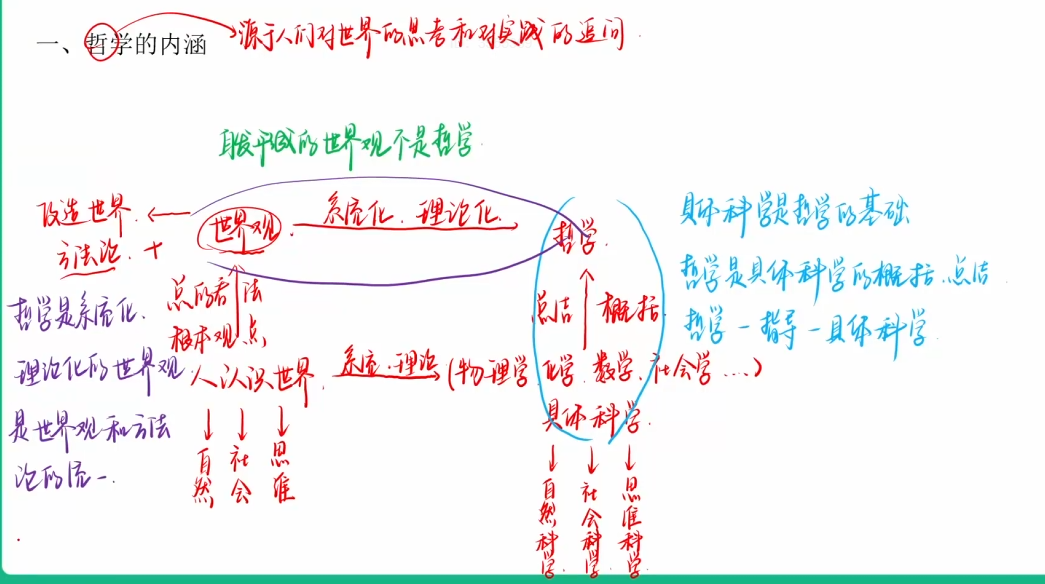 一、哲学的内涵
源于人们对世界的思考和对实践的追问.
的世界观不是哲学.
改造世界.
方法论. +
世界观.
系统化. 理论化.
哲学.
总的看法
根本观点,
总结
概括.
人认识世界.
系统.理论
(物理学,化学.数学.社会学...)
具体科学.
自然
社会
思维
自然科学.
社会科学.
思维科学.
哲学是系统化.
理论化的世界观
是世界观和方法
论的统一.
具体科学是哲学的基础
哲学是具体科学的概括.总结
哲学-指导-具体科学.